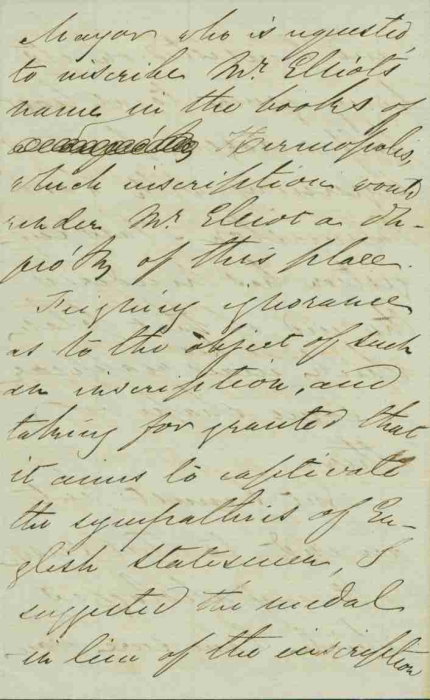 Mayor who is requested
to inscribe Mr Elliot's
name in the books of
Hermopolis,
which inscription would
render Mr Elliot a
of this place.
Feigning ignorance
as to the object of such
an inscription, and
taking for granted that
it aims to captivate
the sympathies of En-
glish statesmen, I
suggested the medal
in lieu of the inscription